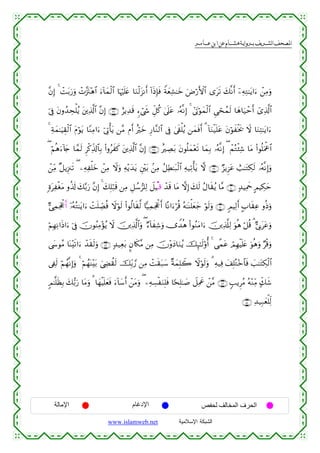 المصحف الشريف برواية هشام عن ابن عامر
وَمِنْ ءَايَٰتِهِۦٓ أَنَّكَ تَرَى ٱلْأَرْضَ خَٰشِعَةً فَإِذَآ أَنزَلْنَا عَلَيْهَا ٱلْمَآءَ ٱهْتَزَّتْ وَرَبَتْ إِنَّ
ٱلَّذِىٓ أَحْيَاهَا لَمُحْىِ ٱلْمَوْتَىٰٓ إِنَّهُۥ عَلَىٰ كُلِّ شَىْءٍ قَدِيرٌ إِنَّ ٱلَّذِينَ يُلْحِدُونَ فِىٓ
ءَايَٰتِنَا لَا يَخْفَوْنَ عَلَيْنَآ أَفَمَن يُلْقَىٰ فِى ٱلنَّارِ خَيْرٌ أَم مَّن يَأْتِىٓ ءَامِنًا يَوْمَ ٱلْقِيَٰمَةِ
ٱعْمَلُوا۟ مَا شِئْتُمْ إِنَّهُۥ بِمَا تَعْمَلُونَ بَصِيرٌ إِنَّ ٱلَّذِينَ كَفَرُوا۟ بِٱلذِّكْرِ لَمَّا جَآءَهُمْ
وَإِنَّهُۥ لَكِتَٰبٌ عَزِيزٌ لَّا يَأْتِيهِ ٱلْبَٰطِلُ مِنۢ بَيْنِ يَدَيْهِ وَلَا مِنْ خَلْفِهِۦ تَنزِيلٌ مِّنْ
حَكِيمٍ حَمِيدٍ مَّا يُقَالُ لَكَ إِلَّا مَا قَدْ قِيلَ لِلرُّسُلِ مِن قَبْلِكَ إِنَّ رَبَّكَ لَذُو مَغْفِرَةٍ
وَذُو عِقَابٍ أَلِيمٍ وَلَوْ جَعَلْنَٰهُ قُرْءَانًا أَعْجَمِيًّا لَّقَالُوا۟ لَوْلَا فُصِّلَتْ ءَايَٰتُهُۥٓ أَعْجَمِىٌّ
وَعَرَبِىٌّ قُلْ هُوَ لِلَّذِينَ ءَامَنُوا۟ هُدًى وَشِفَآءٌ وَٱلَّذِينَ لَا يُؤْمِنُونَ فِىٓ ءَاذَانِهِمْ
وَقْرٌ وَهُوَ عَلَيْهِمْ عَمًى أُو۟لَٰٓئِكَ يُنَادَوْنَ مِن مَّكَانٍۭ بَعِيدٍ وَلَقَدْ ءَاتَيْنَا مُوسَى
ٱلْكِتَٰبَ فَٱخْتُلِفَ فِيهِ وَلَوْلَا كَلِمَةٌ سَبَقَتْ مِن رَّبِّكَ لَقُضِىَ بَيْنَهُمْ وَإِنَّهُمْ لَفِى
شَكٍّ مِّنْهُ مُرِيبٍ مَّنْ عَمِلَ صَٰلِحًا فَلِنَفْسِهِۦ وَمَنْ أَسَآءَ فَعَلَيْهَا وَمَا رَبُّكَ بِظَلَّٰمٍ
لِّلْعَبِيدِ
الحرف المخالف لحفص الإدغام الإمالة
الشبكة الإسلامية www.islamweb.net